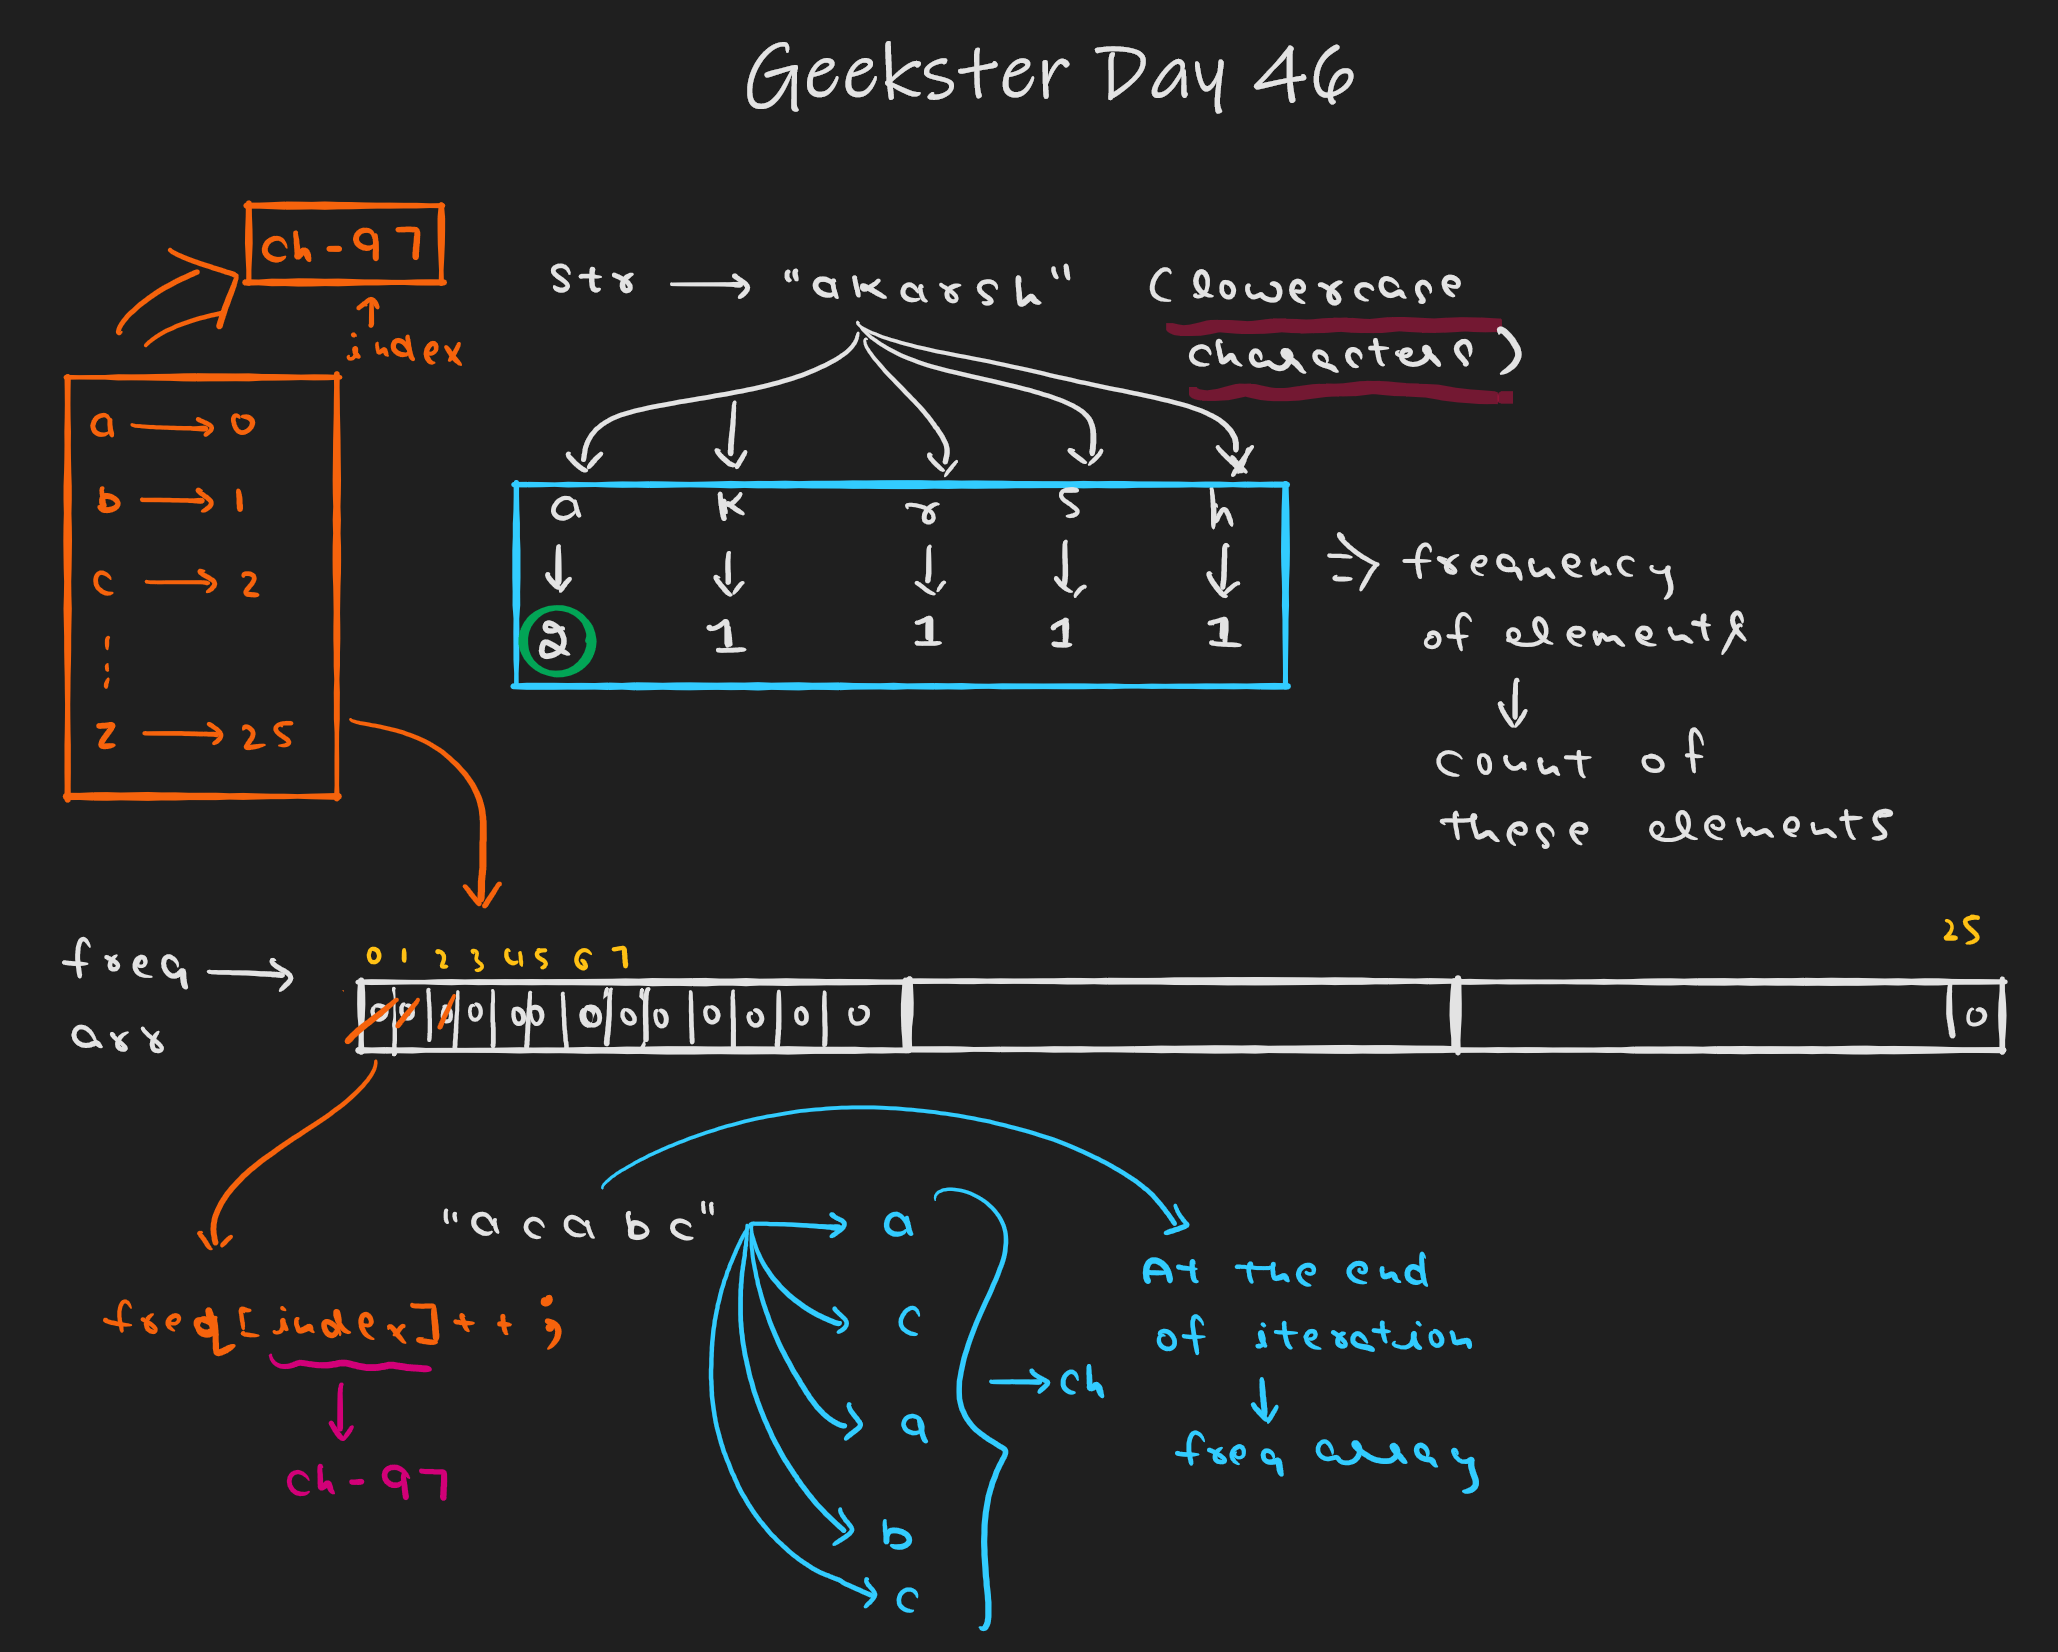 Geekster Day 46
ch - 97
index
a → 0
b → 1
c → 2
z → 25
str → "akarsh" (lowercase
characters)
a k r s h
2 1 1 1 1
⇒ frequency
of elements
count of
these elements
freq →
arr
0 1 2 3 4 5 6 7 25
0 0 0 0 0 0 0 0 0 0 0 0 0 0
freq[index]++;
ch - 97
"acabc"
a
c
a
b
c
→ ch
At the end
of iteration
freq array